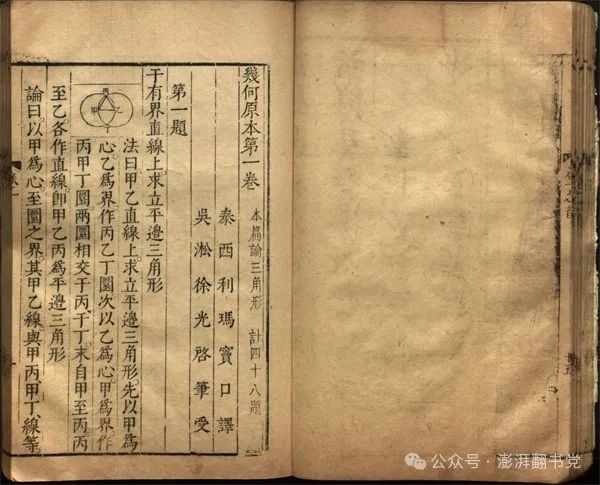 幾何原本第一卷 本篇論三角形 計四十八題
泰西利瑪竇口譯
吳淞徐光啓筆受
第一題
于有界直線上.求立平邊三角形
法曰甲乙直線上求立平邊三角形.先以甲爲
心.乙爲界作丙乙丁圜次以乙爲心.甲爲界作
丙甲丁圜.兩圜相交于丙.于丁.末自甲至丙.丙
至乙各作直線.即甲乙丙爲平邊三角形
論曰.以甲爲心至圜之界其甲乙線與甲丙甲丁線等
丙
甲
乙
丁
卷一
公众号·澎湃翻书党